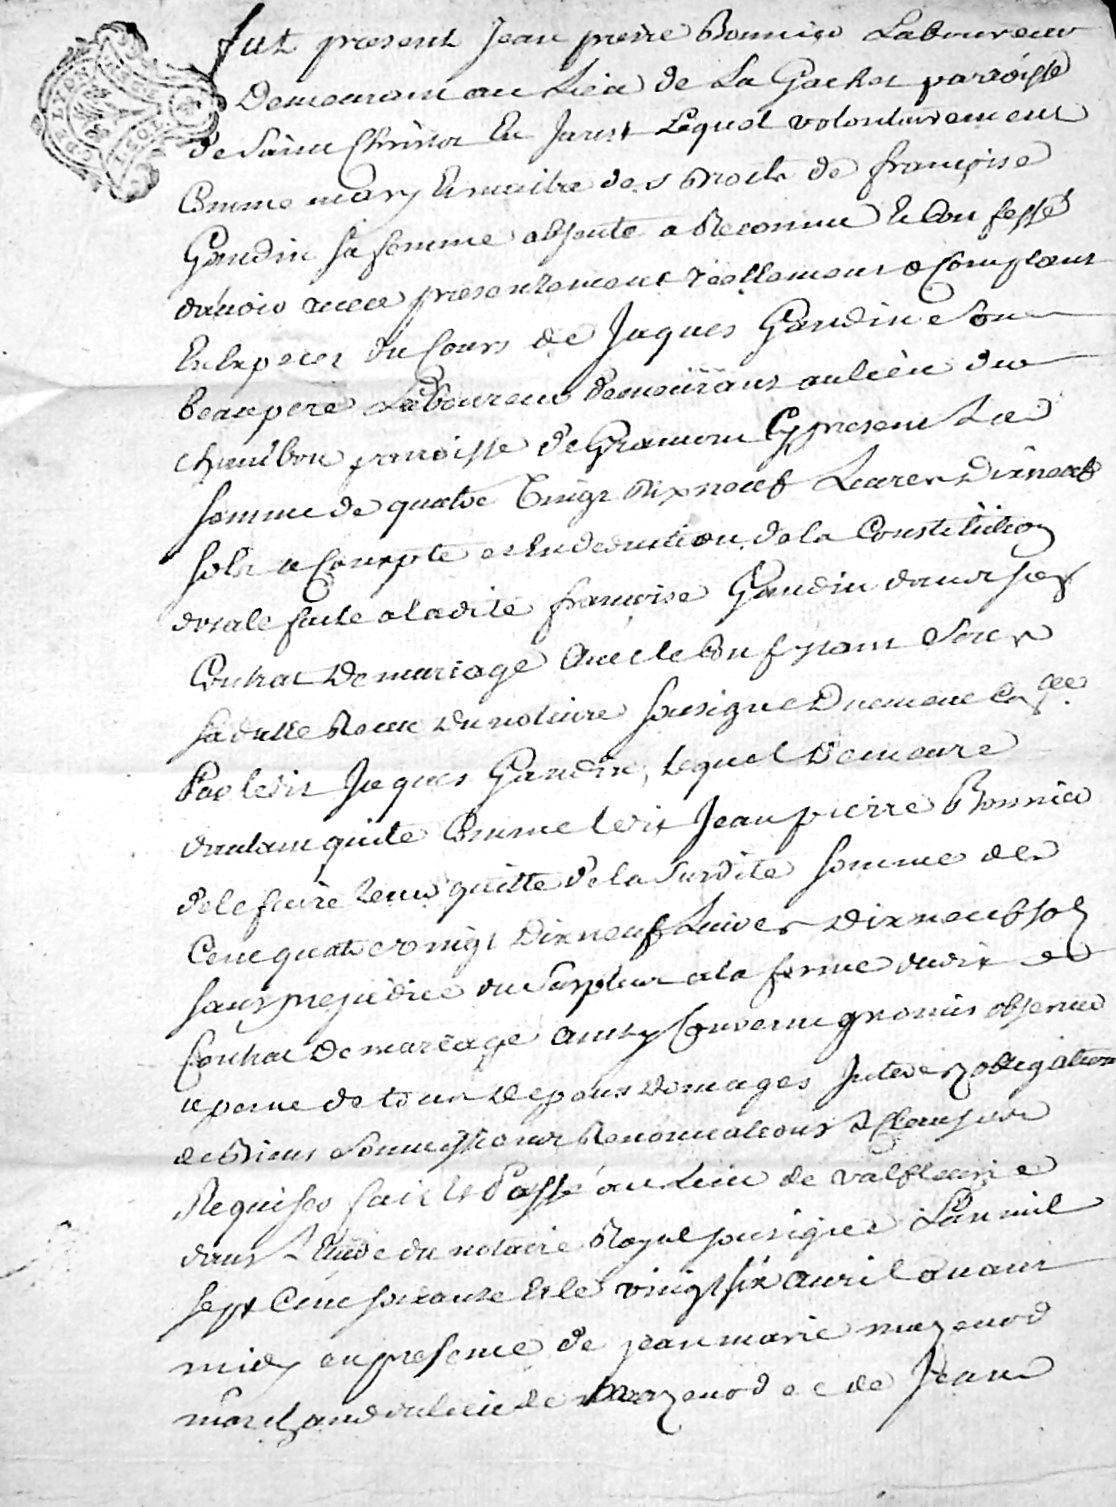 fut present Jean pierre Bonnier Laboureur
Demeurant au Lieu de La Gachet parroisse
de Saint Christot En Jarest Lequel volontairement
Comme mary Et maitre des droits de françoise
Gaudin sa femme absente a Reconnu Et Confessé
d'avoir receu presentement réellement & Comptant
En Especes du Cours de Jaques Gaudin Son
beaupere Laboureur demeurant au lieu du
Chambon parroisse de Gramont Cy present La
somme de quatre Vingt dix neuf Livres Dix neuf
sols a Compte et En deduction de la Constitution
dotale faite a ladite françoise Gaudin dans son
Contrat De mariage Avec le
sa datte Receu Du notaire sousigné
Par ledit Jaques Gaudin, Lequel Demeure
d'autant quitte Comme ledit Jean pierre Bonnier
de le faire tenir quitte de la Susdite somme de
quatre vingt Dix neuf Livres Dix neuf sols
sans prejudice du Surplus a la forme dudit
Contrat De mariage Ainsy Convenu promis observer
a peine de tous Depens Domages Interez obligation
de Biens Soumissions Renonciations & Clauses
Requises fait Et Passé au Lieu de valfleurie
dans L'Etude du notaire Royal sousigné L'an mil
sept Cent soixante Et le vingt six Avril Avant
midy en presence de jean marie mazenod
marchand du lieu de mazenod et de Jean